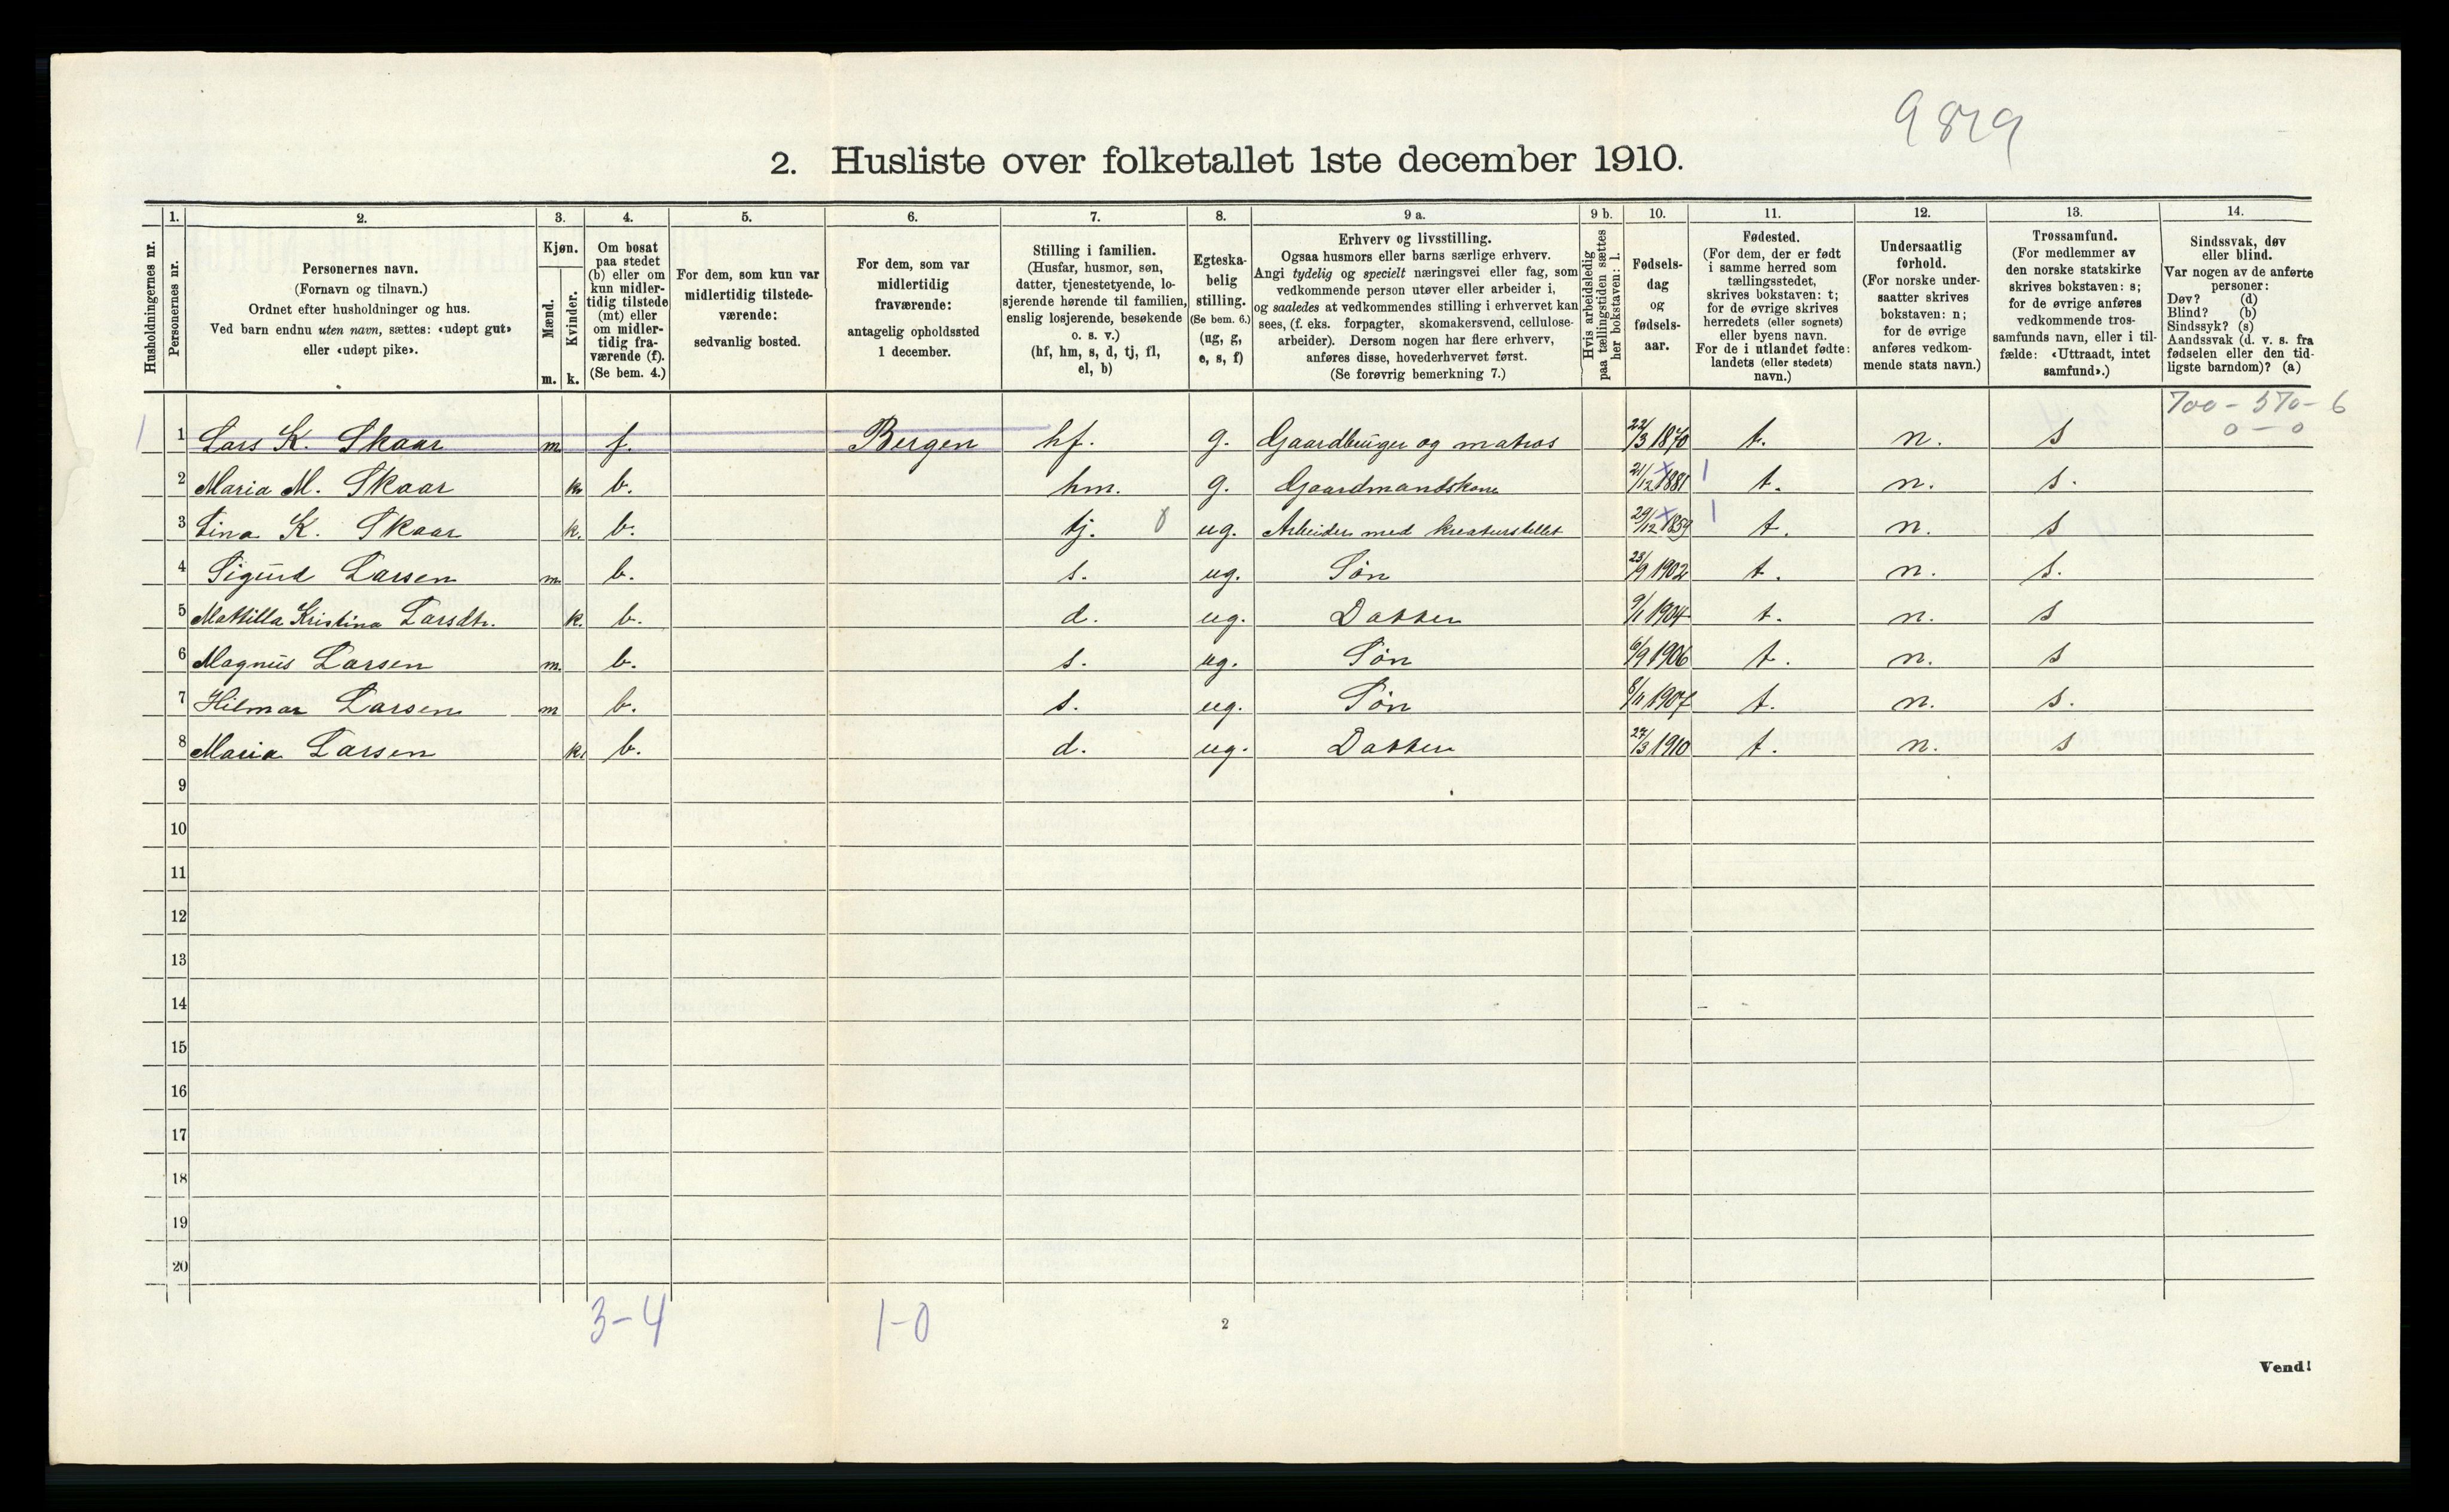 9829
2. Husliste over folketallet 1ste december 1910.
Husholdningernes nr.
1.
Personernes nr.
2.
Personernes navn.
(Fornavn og tilnavn.)
Ordnet efter husholdninger og hus.
Ved barn endnu uten navn, sættes: «udøpt gut»
eller «udøpt pike».
3.
Kjøn.
Mænd.
Kvinder.
m. k.
4.
Om bosat
paa stedet
(b) eller om
kun midler-
tidig tilstede
(mt) eller
om midler-
tidig fra-
værende (f).
(Se bem. 4.)
5.
For dem, som kun var
midlertidig tilstede-
værende:
sedvanlig bosted.
6.
For dem, som var
midlertidig
fraværende:
antagelig opholdssted
1 december.
7.
Stilling i familien.
(Husfar, husmor, søn,
datter, tjenestetyende, lo-
sjerende hørende til familien,
enslig losjerende, besøkende
o. s. v.)
(hf, hm, s, d, tj, fl,
el, b)
8.
Egteska-
belig
stilling.
(Se bem. 6.)
(ug, g,
e, s, f)
9 a.
Erhverv og livsstilling.
Ogsaa husmors eller barns særlige erhverv.
Angi tydelig og specielt næringsvei eller fag, som
vedkommende person utøver eller arbeider i,
og saaledes at vedkommendes stilling i erhvervet kan
sees, (f. eks. forpagter, skomakersvend, cellulose-
arbeider). Dersom nogen har flere erhverv,
anføres disse, hovederhvervet først.
(Se forøvrig bemerkning 7.)
9 b.
Hvis arbeidsledig
paa tællingstiden sættes
her bokstaven: l.
10.
Fødsels-
dag
og
fødsels-
aar.
11.
Fødested.
(For dem, der er født
i samme herred som
tællingsstedet,
skrives bokstaven: t;
for de øvrige skrives
herredets (eller sognets)
eller byens navn.
For de i utlandet fødte:
landets (eller stedets)
navn.)
12.
Undersaatlig
forhold.
(For norske under-
saatter skrives
bokstaven: n;
for de øvrige
anføres vedkom-
mende stats navn.)
13.
Trossamfund.
(For medlemmer av
den norske statskirke
skrives bokstaven: s;
for de øvrige anføres
vedkommende tros-
samfunds navn, eller i til-
fælde: «Uttraadt, intet
samfund».)
14.
Sindssvak, døv
eller blind.
Var nogen av de anførte
personer:
Døv? (d)
Blind? (b)
Sindssyk? (s)
Aandssvak (d. v. s. fra
fødselen eller den tid-
ligste barndom)? (a)
700 - 570 - 6
0 - 0
1 1 Lars K. Skaar m. f. Bergen hf. g. Gaardbruger og matros 22/3 1870 t. n. s
2 Maria M. Skaar k. b. hm. g. Gaardmandskone 21/12 1881 1 t. n. s.
3 Lina K. Skaar k. b. tj. 0 ug. Arbeider med kreaturstellet 29/12 1859 1 t. n. s
4 Sigurd Larsen m. b. s. ug. Søn 23/9 1902 t. n. s.
5 Mathilla Kristina Larsdtr. k. b. d. ug. Datter 9/11 1904 t. n. s
6 Magnus Larsen m. b. s. ug. Søn 6/9 1906 t. n. s
7 Hilmar Larsen m b. s. ug. Søn 8/11 1907 t. n. s.
8 Maria Larsen k. b. d. ug. Datter 27/3 1910 t. n. s
9
10
11
12
13
14
15
16
17
18
19
20
3-4 1-0
2
Vend!